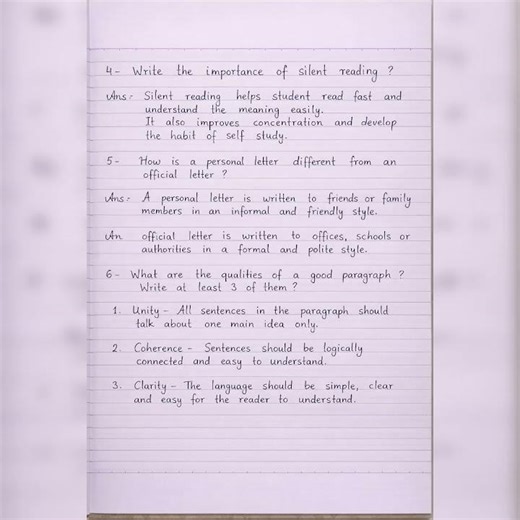 4- Write the importance of silent reading ?
Ans:- Silent reading helps student read fast and
understand the meaning easily.
It also improves concentration and develop
the habit of self study.
5- How is a personal letter different from an
official letter ?
Ans:- A personal letter is written to friends or family
members in an informal and friendly style.
An official letter is written to offices, schools or
authorities in a formal and polite style.
6- What are the qualities of a good paragraph ?
Write at least 3 of them ?
1. Unity - All sentences in the paragraph should
talk about one main idea only.
2. Coherence - Sentences should be logically
connected and easy to understand.
3. Clarity - The language should be simple, clear
and easy for the reader to understand.